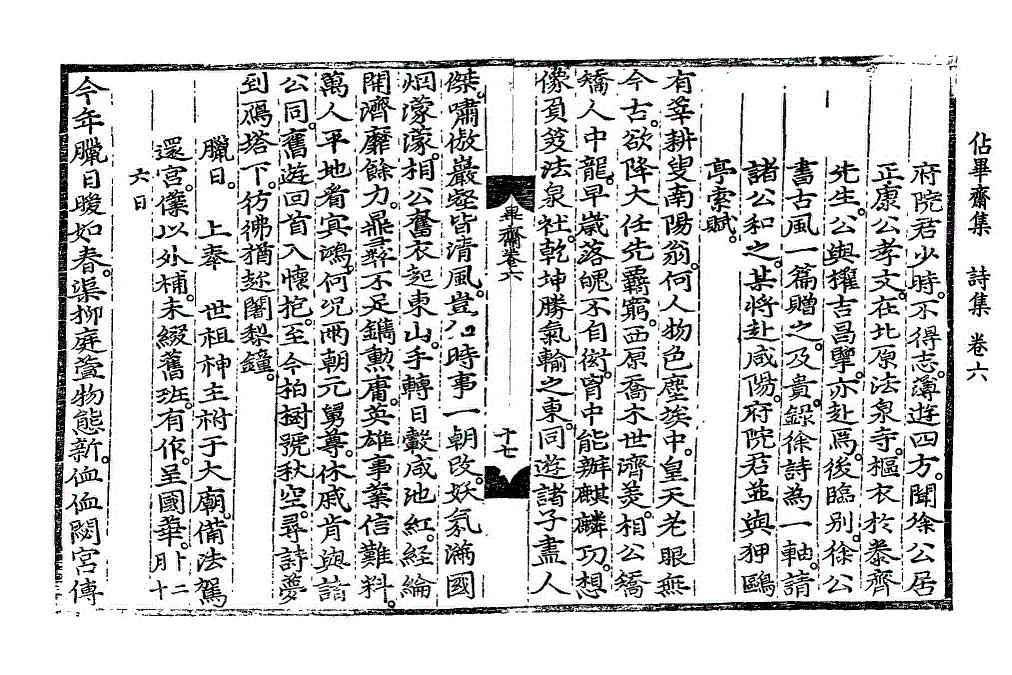 佔畢齋集　詩集　卷六
府院君少時。不得志。薄遊四方。聞徐公居
正康公孝文。在北原法泉寺。樞衣於泰齊
先生。公與權吉昌擥。亦赴焉。後臨別。徐公
書古風一篇贈之。及貴。錄徐詩為一軸。請
諸公和之。某將赴咸陽。府院君並與狎鷗
亭索賦。
有莘耕叟南陽翁。何人物色塵埃中。皇天老眼無
今古。欲降大任先覊窮。西原喬木世濟美。相公矯
矯人中龍。早歲落魄不自衒。胷中能辦麒麟功。想
像負笈法泉社。乾坤勝氣輸之東。同遊諸子盡人
畢齋卷六
十七
傑。嘯傲巖壑皆清風。豈公時事一朝改。妖氛滿國
烟濛濛。相公奮衣起東山。手轉日轂咸池紅。經綸
開濟靡餘力。鼎彛不足鐫勲庸。英雄事業信難料。
萬人平地看冥鴻。何況兩朝元舅尊。休戚肯與諸
公同。舊遊回首入懷抱。至今拍樹號秋空。尋詩夢
到鴈塔下。彷彿猶趁闍梨鐘。
臘日。　上奉　世祖神主祔于大廟。備法駕
還宮。僕以外補。未綴舊班。有作。呈國華。十二月十
六日
今年臘日暖如春。渠柳庭萱物態新。侐侐閟宮傳